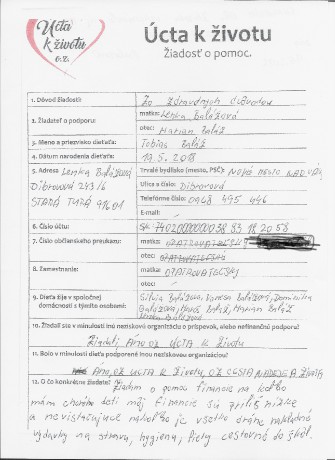 Úcta
k životu
o.z.
Úcta k životu
Žiadosť o pomoc.
1. Dôvod žiadosti: Zo zdravotných dôvodov
2. Žiadateľ o podporu: matka: Lenka Balážová
otec: Marian Baláž
3. Meno a priezvisko dieťaťa: Tobias Baláž
4. Dátum narodenia dieťaťa: 19.5.2018
5. Adresa Lenka Balážová Trvalé bydlisko (mesto, PSČ): NOVÉ MESTO NAD VÁH
Dibrovova 243/6 Ulica a číslo: Dibrovova
STARÁ TURÁ 91601 Telefónne číslo: 0948 495 446
E-mail:
6. Číslo účtu: SK
7. Číslo občianskeho preukazu: matka:
otec:
8. Zamestnanie: matka: OPATROVATEĽSKÝ
otec: OPATROVATEĽSKÝ
9. Dieťa žije v spoločnej Silvia Balážová, Vanesa Balážová, Dominika
domácnosti s týmito osobami: Balážová, Baláž, Marian Baláž
Balážová
10. Žiadali ste v minulosti inú neziskovú organizáciu o príspevok, alebo nefinančnú podporu?
Žiadali Áno, OZ ÚCTA K Životu
11. Bolo v minulosti dieťa podporené inou neziskovou organizáciou?
Áno, OZ ÚCTA K ŽIVOTU, OZ CESTA NÁDEJE A Života
12. O čo konkrétne žiadate? Žiadam o pomoc financie na
mám choré deti môj financie sú príliš nízke
a nevystačujúce je všetko drahé nákladné
výdavky na strava, hygiena, lieky cestovné do škôl.